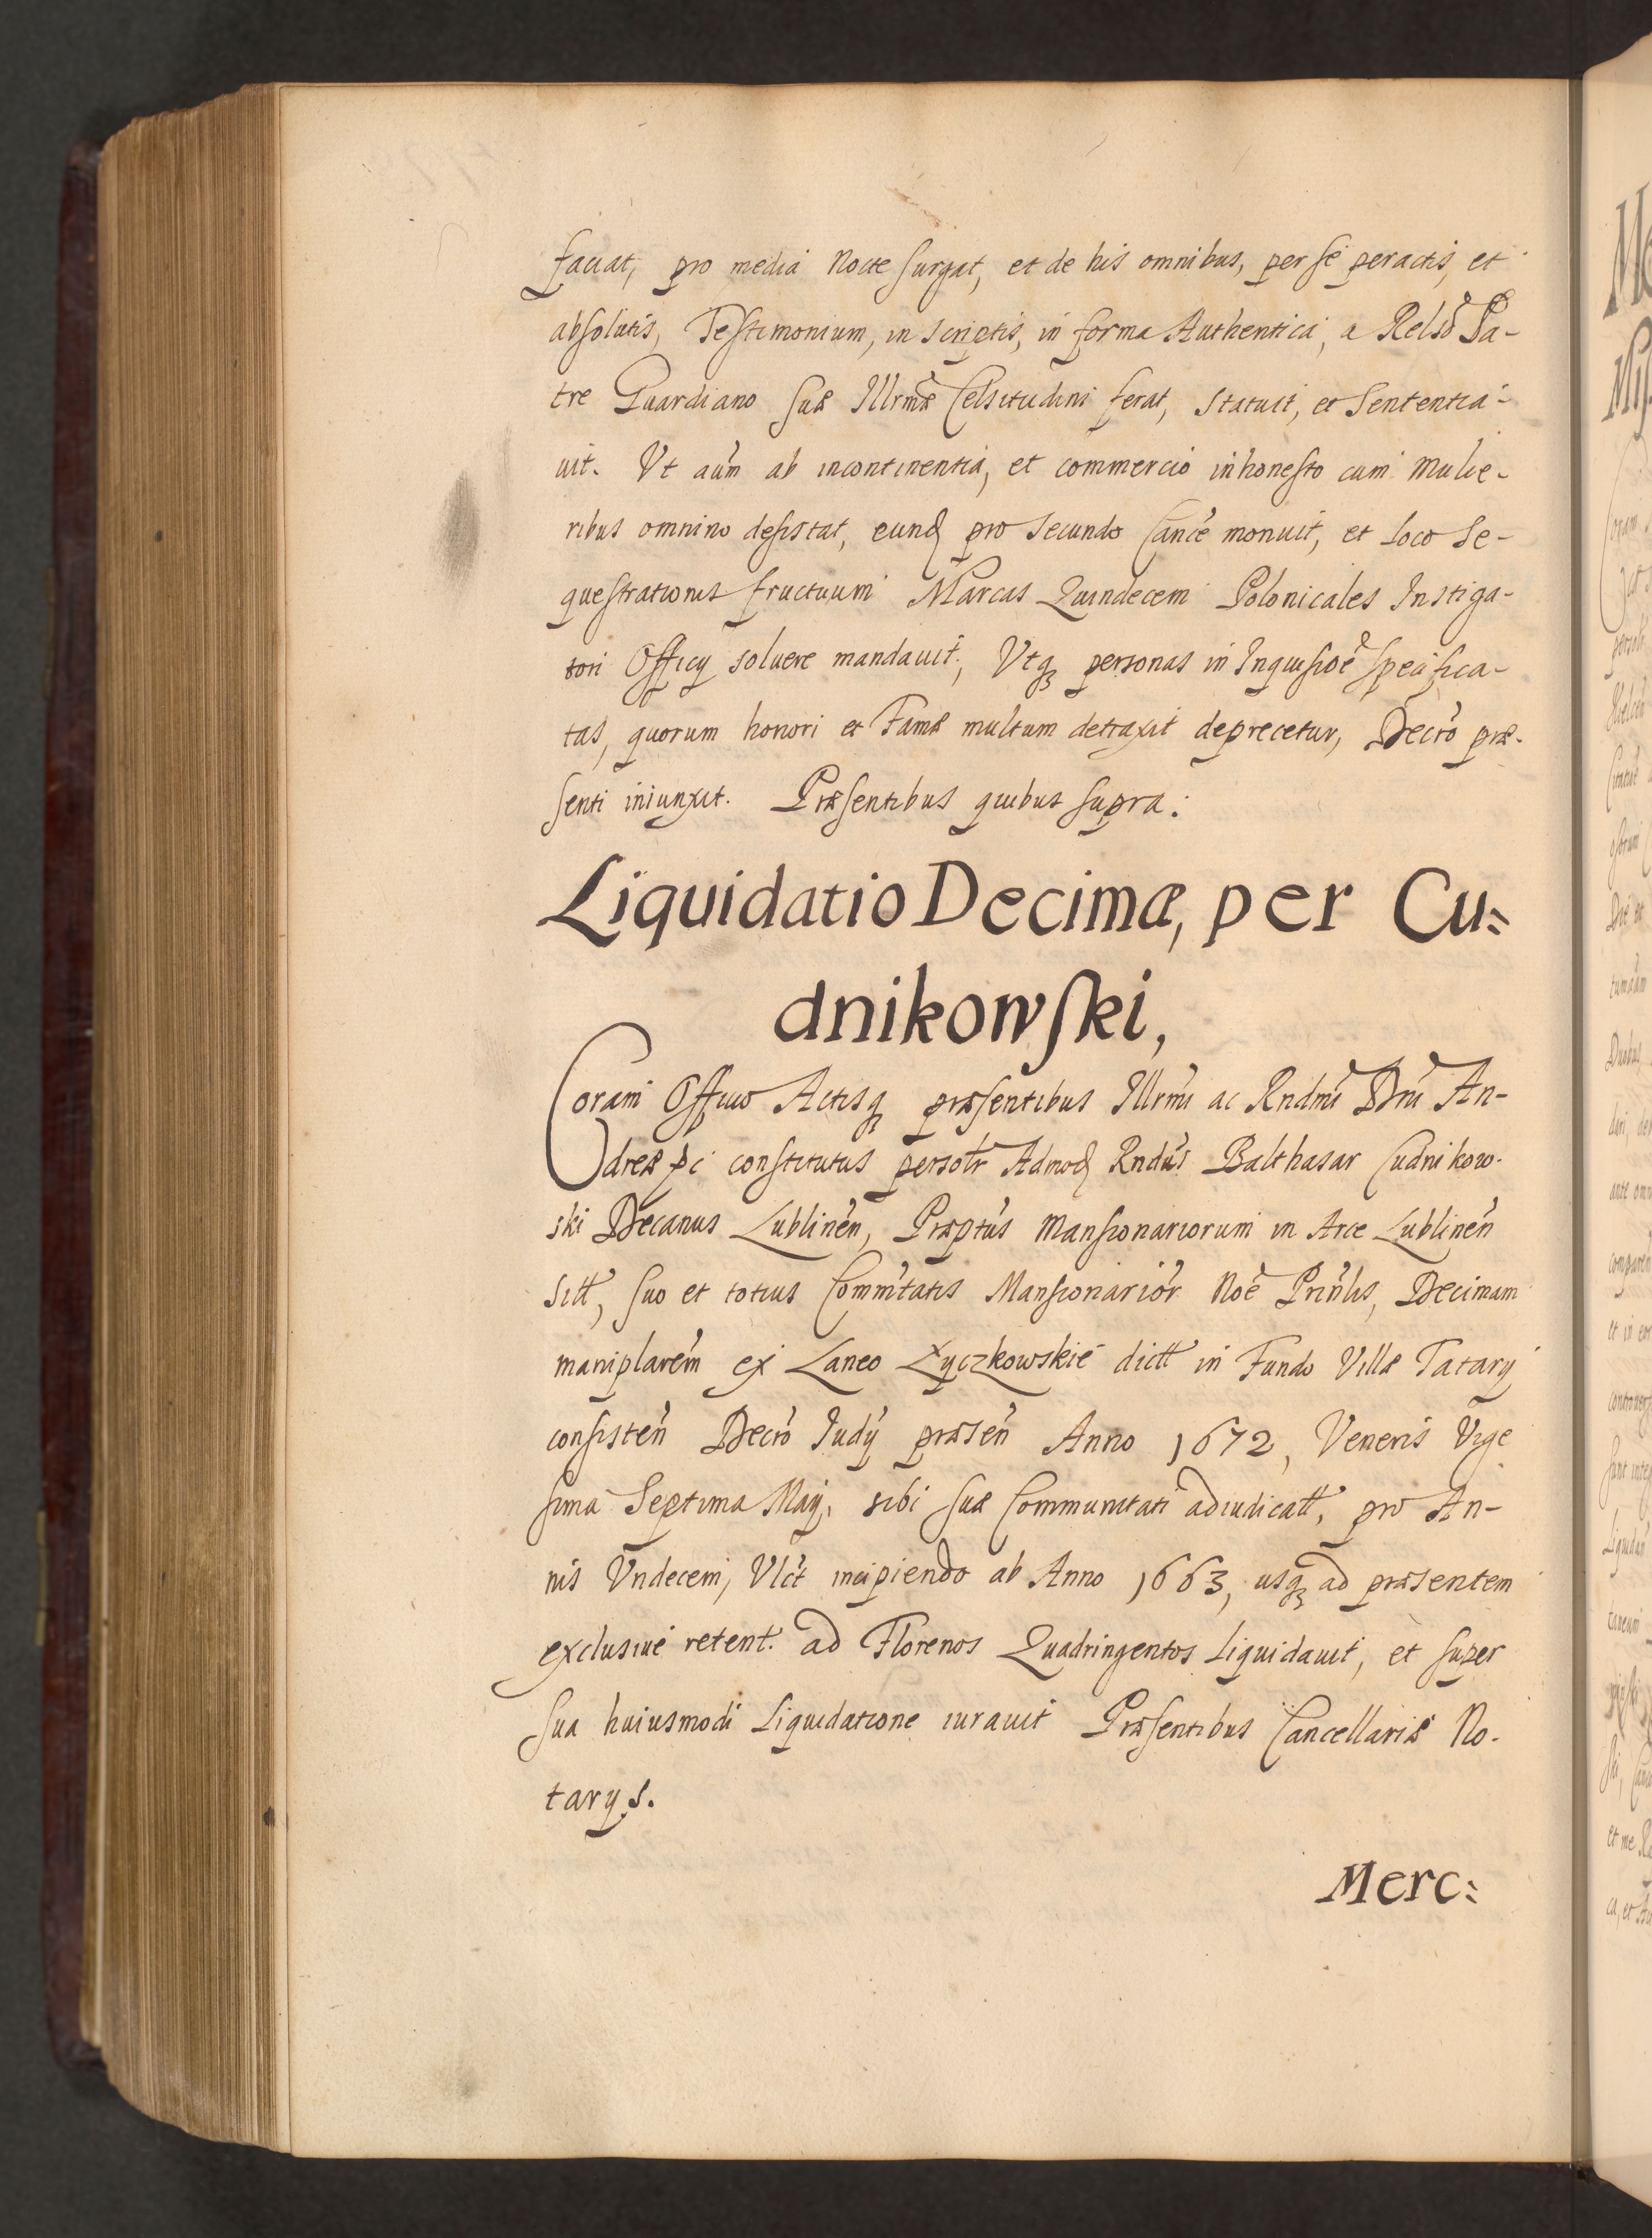 faciat, pro media Nocte surgat, et de his omnibus, per se peractis, et
absolutis, Testimonium, in scriptis, in forma Authentica, a Relsō Pa-
tre Guardiano suæ Illrmæ Celsitudini ferat, statuit, et Sententia-
uit. Vt aūm ab incontinentia, et commercio inhonesto cum mulie-
ribus omnino desistat, eunđ pro secundo Cancē monuit, et loco Se-
questrationis fructuum Marcas Quindecem Polonicales Instiga-
tori Officij soluere mandauit, Vtqꝫ personas in Inquisiōe specifica-
tas, quorum honori et Famæ multum detraxit deprecetur, Decrō præ-
senti iniunxit. Præsentibus quibus supra.
Liquidatio Decimæ, per Cu=
dnikowski,
Coram Officio Actisqꝫ præsentibus Illrmi ac Rndmi Dni An-
dreæ constitutus persolr Admođ Rndus Balthasar Cudnikow-
ski Decanus Lublinēn, Præptus Mansionariorum in Arce Lublinēn
sitt, suo et totius Commtatis Mansionariōr Noē Prinlis, Decimam
maniplarem ex Laneo Łyczkowskie dictt in Fundo Villæ Tatary
consistēn Decrō Judÿ præsēn Anno 1672, Veneris Vige
sima Septima Maij, sibi suæ Communitati adiudicatt, pro An-
nis Vndecem, Vlct incipiendo ab Anno 1663, usqꝫ ad præsentem
exclusiue retent. ad Florenos Quadringentos Liquidauit, et super
sua huiusmodi Liquidatione iurauit Præsentibus Cancellariæ No-
tarys.
Merc=